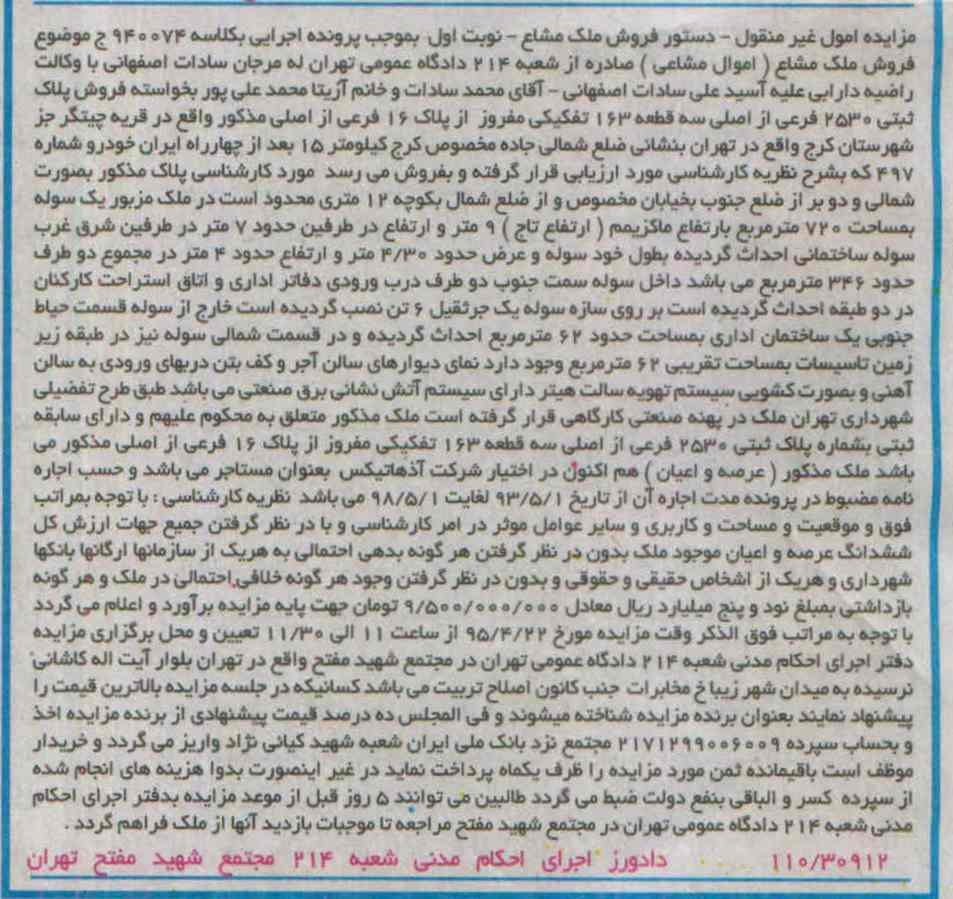 مزایده اموال غیر منقول - دستور فروش ملک مشاع - نوبت اول بموجب پرونده اجرایی بکلاسه ۹۴۰۰۷۴ ج موضوع
فروش ملک مشاع ( اموال مشاعی ) صادره از شعبه ۲۱۴ دادگاه عمومی تهران له مرجان سادات اصفهانی با وکالت
راضیه دارابی علیه آسید علی سادات اصفهانی - آقای محمد سادات و خانم آزیتا محمد علی پور بخواسته فروش پلاک
ثبتی ۲۵۳۰ فرعی از اصلی سه قطعه ۱۶۳ تفکیکی مفروز از پلاک ۱۶ فرعی از اصلی مذکور واقع در قریه چیتگر جز
شهرستان کرج واقع در تهران بنشانی ضلع شمالی جاده مخصوص کرج کیلومتر ۱۵ بعد از چهارراه ایران خودرو شماره
۴۹۷ که بشرح نظریه کارشناسی مورد ارزیابی قرار گرفته و بفروش می رسد مورد کارشناسی پلاک مذکور بصورت
شمالی و دو بر از ضلع جنوب بخیابان مخصوص و از ضلع شمال بکوچه ۱۲ متری محدود است در ملک مزبور یک سوله
بمساحت ۷۲۰ مترمربع بارتفاع ماکزیمم ( ارتفاع تاج ) ۹ متر و ارتفاع در طرفین حدود ۷ متر در طرفین شرق غرب
سوله ساختمانی احداث گردیده بطول خود سوله و عرض حدود ۴/۳۰ متر و ارتفاع حدود ۴ متر در مجموع دو طرف
حدود ۳۴۶ مترمربع می باشد داخل سوله سمت جنوب دو طرف درب ورودی دفاتر اداری و اتاق استراحت کارکنان
در دو طبقه احداث گردیده است بر روی سازه سوله یک جرثقیل ۶ تن نصب گردیده است خارج از سوله قسمت حیاط
جنوبی یک ساختمان اداری بمساحت حدود ۶۲ مترمربع احداث گردیده و در قسمت شمالی سوله نیز در طبقه زیر
زمین تاسیسات بمساحت تقریبی ۶۲ مترمربع وجود دارد نمای دیوارهای سالن آجر و کف بتن دربهای ورودی به سالن
آهنی و بصورت کشویی سیستم تهویه سالت هیتر دارای سیستم آتش نشانی برق صنعتی می باشد طبق طرح تفضیلی
شهرداری تهران ملک در پهنه صنعتی کارگاهی قرار گرفته است ملک مذکور متعلق به محکوم علیهم و دارای سابقه
ثبتی بشماره پلاک ثبتی ۲۵۳۰ فرعی از اصلی سه قطعه ۱۶۳ تفکیکی مفروز از پلاک ۱۶ فرعی از اصلی مذکور می
باشد ملک مذکور ( عرصه و اعیان ) هم اکنون در اختیار شرکت آذهاتیکس بعنوان مستاجر می باشد و حسب اجاره
نامه مضبوط در پرونده مدت اجاره آن از تاریخ ۹۳/۵/۱ لغایت ۹۸/۵/۱ می باشد نظریه کارشناسی : با توجه بمراتب
فوق و موقعیت و مساحت و کاربری و سایر عوامل موثر در امر کارشناسی و با در نظر گرفتن جمیع جهات ارزش کل
ششدانگ عرصه و اعیان موجود ملک بدون در نظر گرفتن هر گونه بدهی احتمالی به هریک از سازمانها ارگانها بانکها
شهرداری و هریک از اشخاص حقیقی و حقوقی و بدون در نظر گرفتن وجود هر گونه خلافی احتمالی در ملک و هر گونه
بازداشتی بمبلغ نود و پنج میلیارد ریال معادل ۹/۵۰۰/۰۰۰/۰۰۰ تومان جهت پایه مزایده برآورد و اعلام می گردد
با توجه به مراتب فوق الذکر وقت مزایده مورخ ۹۵/۴/۲۲ از ساعت ۱۱ الی ۱۱/۳۰ تعیین و محل برگزاری مزایده
دفتر اجرای احکام مدنی شعبه ۲۱۴ دادگاه عمومی تهران در مجتمع شهید مفتح واقع در تهران بلوار آیت اله کاشانی
نرسیده به میدان شهر زیبا خ مخابرات جنب کانون اصلاح تربیت می باشد کسانیکه در جلسه مزایده بالاترین قیمت را
پیشنهاد نمایند بعنوان برنده مزایده شناخته میشوند و فی المجلس ده درصد قیمت پیشنهادی از برنده مزایده اخذ
و بحساب سپرده ۲۱۷۱۲۹۹۰۰۶۰۰۹ مجتمع نزد بانک ملی ایران شعبه شهید کیانی نژاد واریز می گردد و خریدار
موظف است باقیمانده ثمن مورد مزایده را ظرف یکماه پرداخت نماید در غیر اینصورت بدوا هزینه های انجام شده
از سپرده کسر و الباقی بنفع دولت ضبط می گردد طالبین می توانند ۵ روز قبل از موعد مزایده بدفتر اجرای احکام
مدنی شعبه ۲۱۴ دادگاه عمومی تهران در مجتمع شهید مفتح مراجعه تا موجبات بازدید آنها از ملک فراهم گردد .
۱۱۰/۳۰۹۱۲ دادورز اجرای احکام مدنی شعبه ۲۱۴ مجتمع شهید مفتح تهران